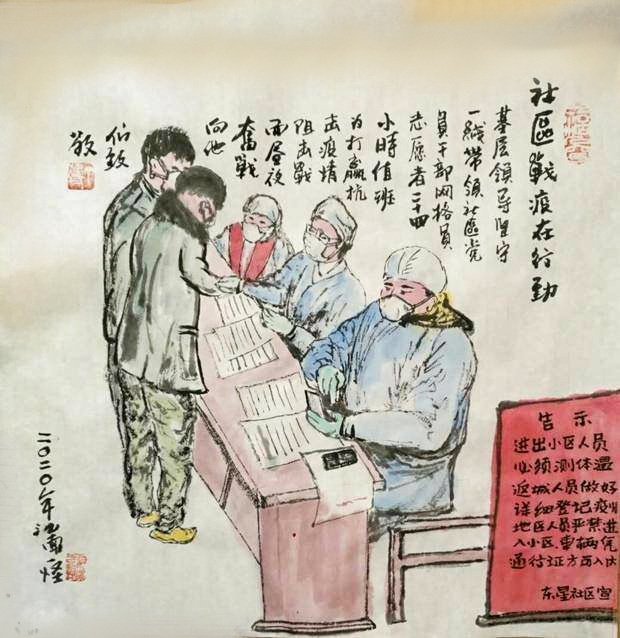 社區戰疫在行動
基层领导坚守
一线带领社區党
員干部网格員
志愿者二十四
小時值班
为打赢抗
击疫情
阻击战
而昼夜
奮戰
向他
们致
敬
二〇二〇年
告示
进出小区人员
必须测体温
返城人员做好
详细登记疫
地区人员严禁进
入小区.車辆凭
通行证方可入
东星社区宣